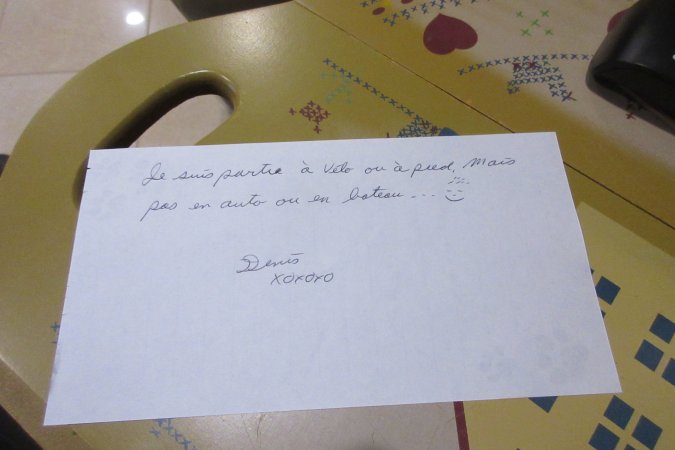 Je suis partie à Vélo ou à pied, mais
pas en auto ou en bateau...
Denis
xoxoxo